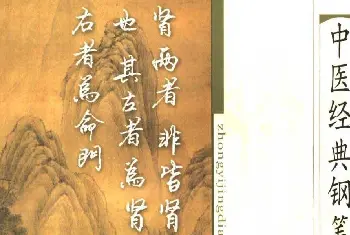 肾两者非皆肾
也其左者为肾
右者为命门
zhongyijingdia
中医经典钢笔